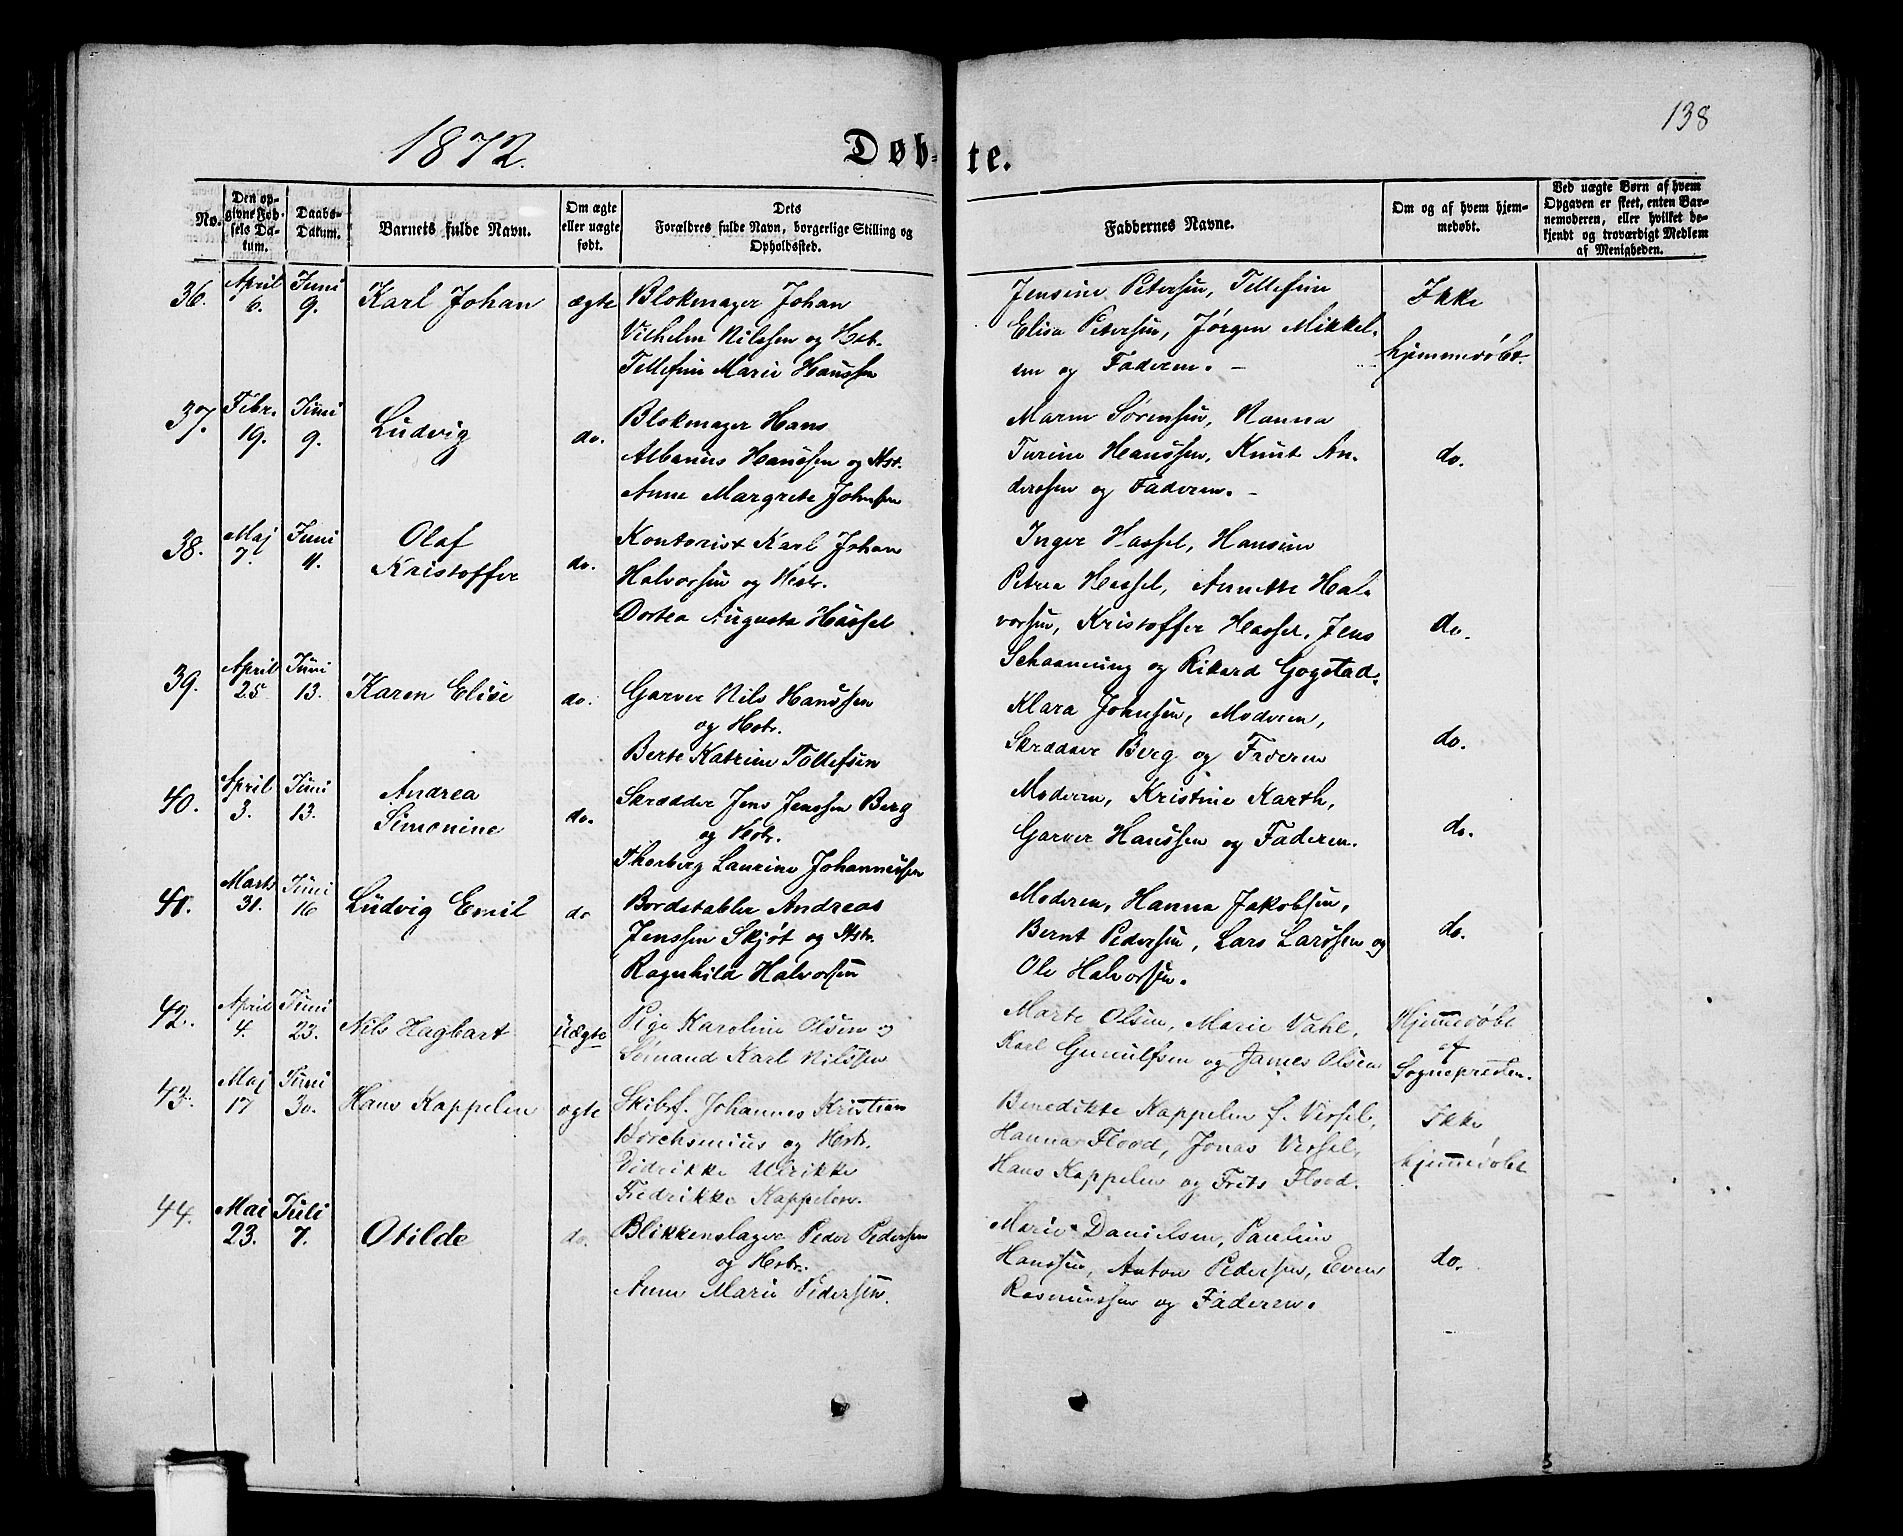 138
1872.
Døb-te.
No.
Den op-
givne Fød-
sels Da-
tum.
Daabs-
Datum.
Barnets fulde Navn.
Om ægte
eller uægte
født.
Dets
Forældres fulde Navn, borgerlige Stilling og
Opholdssted.
Faddernes Navne.
Om og af hvem hjem-
medøbt.
Ved uægte Børn af hvem
Opgaven er skeet, enten Bar-
nemoderen, eller hvilket be-
kjendt og troværdigt Medlem
af Menigheden.
36.
April
6.
Juni
9.
Karl Johan
ægte
Blokmager Johan
Vilhelm Nilssen og Hstr.
Tellefine Marie Hanssen
Jensine Petersen, Tellefine
Elisa Petersen, Jørgen Mikkel-
sen og Faderen. -
Ikke
hjemmedøbt.
37.
Febr.
19.
Juni
9.
Ludvig
do.
Blokmager Hans
Albanus Hanssen og Hst.
Anne Margrete Johnsen
Maren Sørensen, Nanna
Turine Hanssen, Knut An-
derssen og Faderen. -
do.
38.
Maj
7.
Juni
11.
Olaf
Kristoffer
do.
Kontorist Karl Johan
Halvorsen og Hstr.
Dortea Augusta Hassel
Inger Hassel, Hansine
Petrea Hassel, Annette Hal-
vorsen, Kristoffer Hassel, Jens
Schaanning og Rikard Gogstad.
do.
39.
April
25.
Juni
13.
Karen Elise
do.
Garver Nils Hanssen
og Hstr.
Berte Katrine Tollefsen
Klara Johnsen, Moderen,
Skrædder Berg og Faderen
do.
40.
April
3.
Juni
13.
Andrea
Simonine
do.
Skrædder Jens Jenssen Berg
og Hstr.
Thorberg Laurine Johannessen
Moderen, Kristine Karth,
Garver Hanssen og Faderen.
do.
41.
Marts
31.
Juni
16
Ludvig Emil
do
Bordstabler Andreas
Jenssen Skjøt og Hstr.
Ragnhild Halvorsen
Moderen, Hanna Jakobsen,
Bernt Pedersen, Lars Larssen og
Ole Halvorsen.
do.
42.
April
4.
Juni
23.
Nils Hagbart
uægte
Pige Karoline Olsen og
Sømand Karl Nilssen
Marte Olsen, Marie Vahl,
Karl Gunulfsen og James Olsen
Hjemmedøbt
af
Sognepresten.
43.
Maj
17
Juni
30.
Hans Kappelen
ægte
Skibsf. Johannes Kristian
Borchsenius og Hstr.
Didrikke Ulrikke
Fredrikke Kappelen.
Benedikte Kappelen f. Versel,
Hanna Flood, Jonas Versel,
Hans Kappelen og Frits Flood.
Ikke
hjemmedøbt
44.
Mai
23.
Juli
7.
Otilde
do.
Blikkenslager Peder Pedersen
og Hstr.
Anne Marie Pedersen.
Marie Danielsen, Pauline
Hanssen, Anton Pedersen, Even
Rasmussen og Faderen.
do.